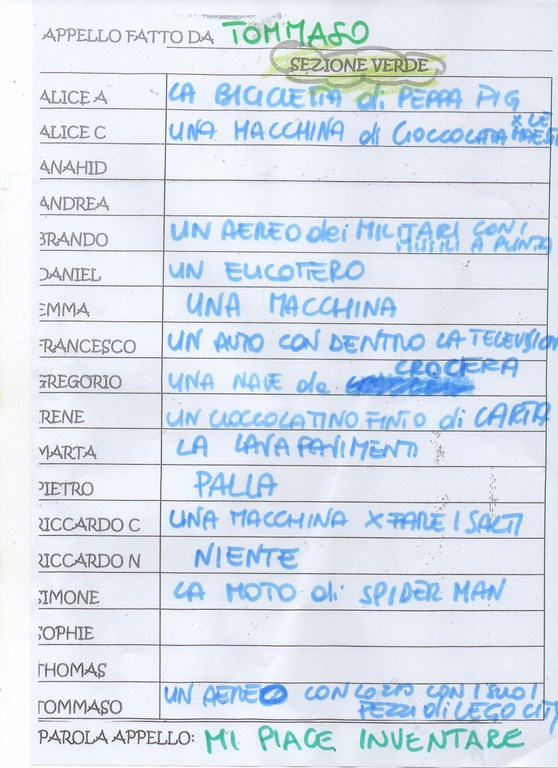 APPELLO FATTO DA TOMMASO
SEZIONE VERDE
ALICE A LA BICICLETTA di PEPPA PIG
ALICE C UNA MACCHINA di CIOCCOLATA X LE MAEST
ANAHID
ANDREA
BRANDO UN AEREO dei MILITARI CON I MISSILI A PUNTA
DANIEL UN ELICOTTERO
EMMA UNA MACCHINA
FRANCESCO UN AUTO CON DENTRO LA TELEVISION
GREGORIO UNA NAVE da CROCIERA
IRENE UN CIOCCOLATINO FINTO di CARTA
MARTA LA LAVA PAVIMENTI
PIETRO PALLA
RICCARDO C UNA MACCHINA X FARE I SALTI
RICCARDO N NIENTE
SIMONE LA MOTO di SPIDER MAN
SOPHIE
THOMAS
TOMMASO UN AEREO CON I SUOI PEZZI di LEGO CITY
PAROLA APPELLO: MI PIACE INVENTARE